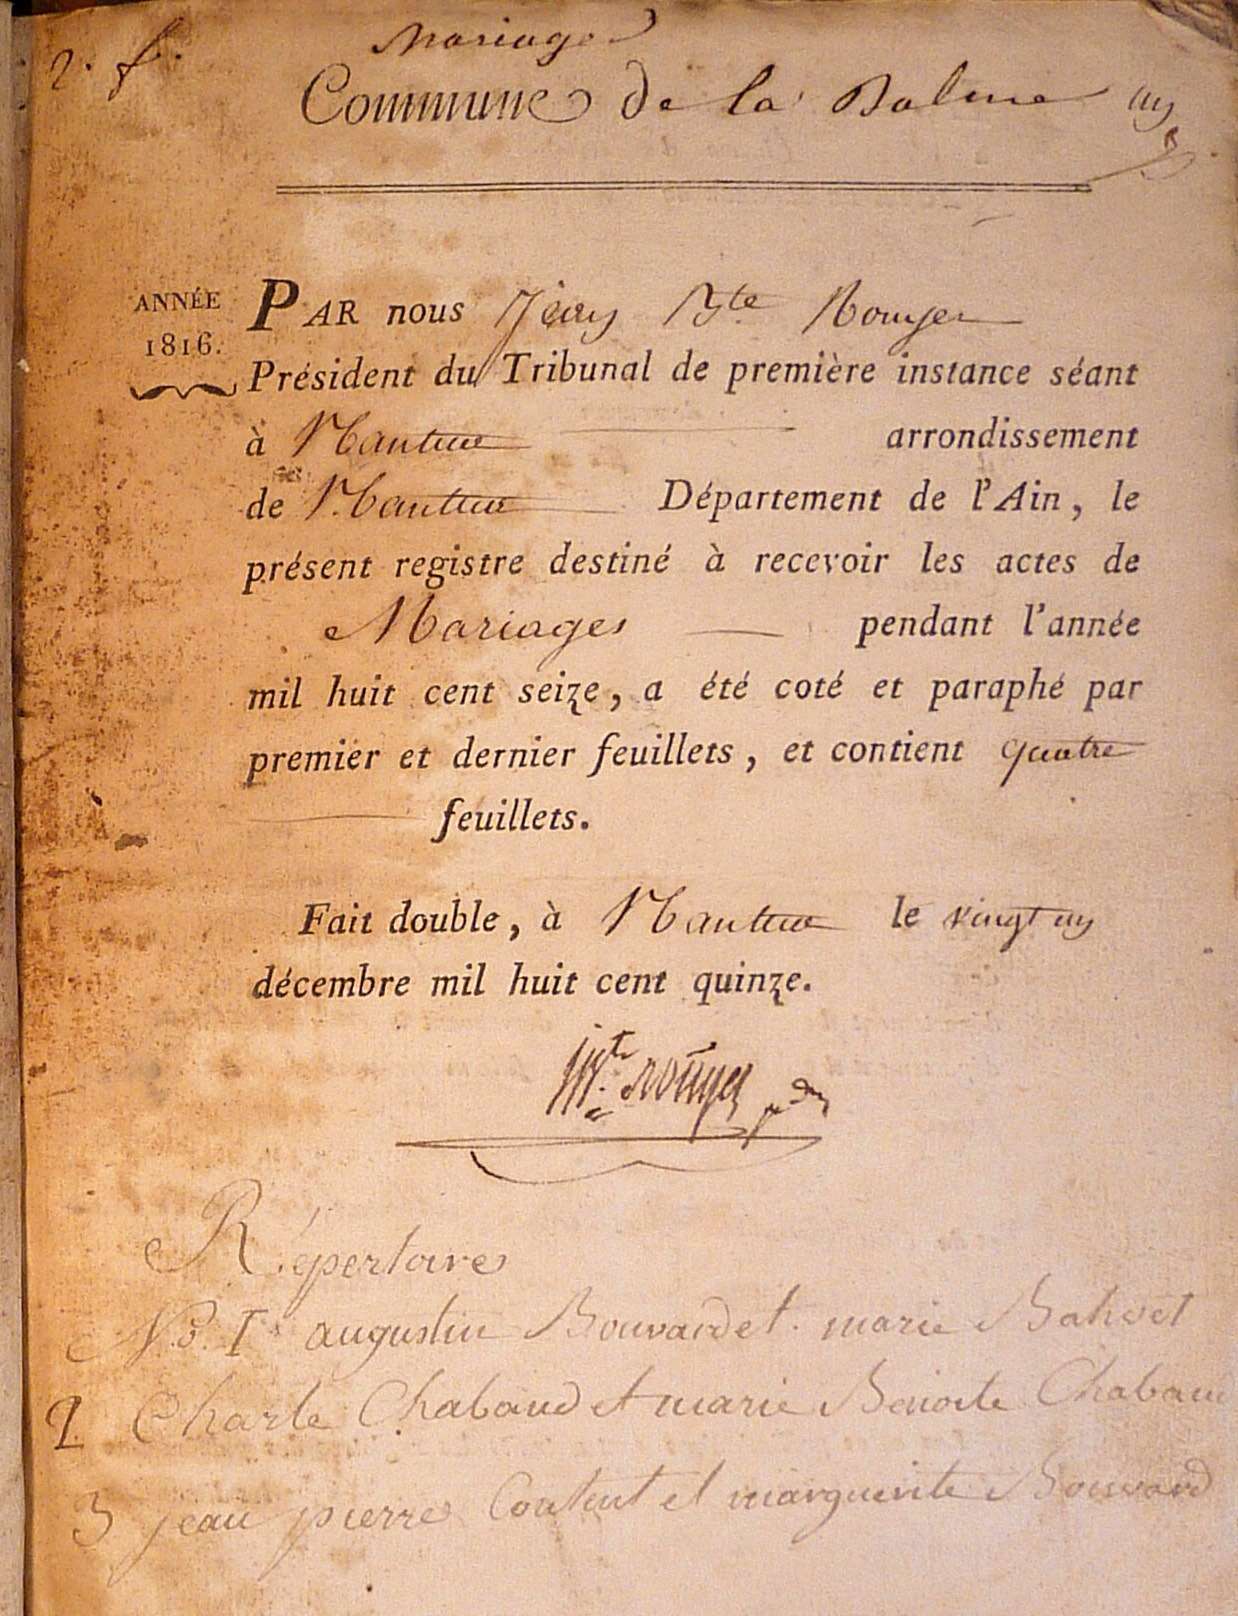 2. f.
Mariages
Commune de la Balme un
ANNÉE
1816.
PAR nous Jean Bte Rouyer
Président du Tribunal de première instance séant
à Nantua arrondissement
de Nantua Département de l'Ain, le
présent registre destiné à recevoir les actes de
Mariages pendant l'année
mil huit cent seize, a été coté et paraphé par
premier et dernier feuillets, et contient quatre
feuillets.
Fait double, à Nantua le vingt un
décembre mil huit cent quinze.
Rouyer
Répertoire
No. 1 augustin Bouvard et marie
2 Charle Chabaud et marie Benoite Chabaud
3 jean pierre Content et marguerite Bouvard